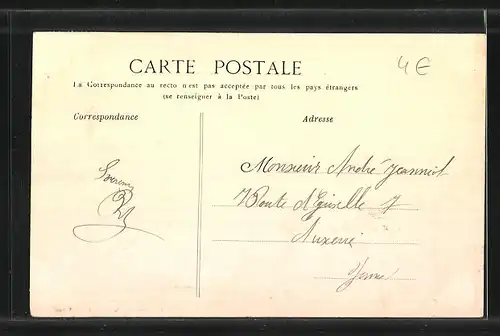 CARTE POSTALE
4€
La Correspondance au recto n'est pas acceptée par tous les pays étrangers
(se renseigner à la Poste)
Correspondance
Adresse
Monsieur André Jeanniot
7 Route d'Eguselle 7
Auxerre
Yonne